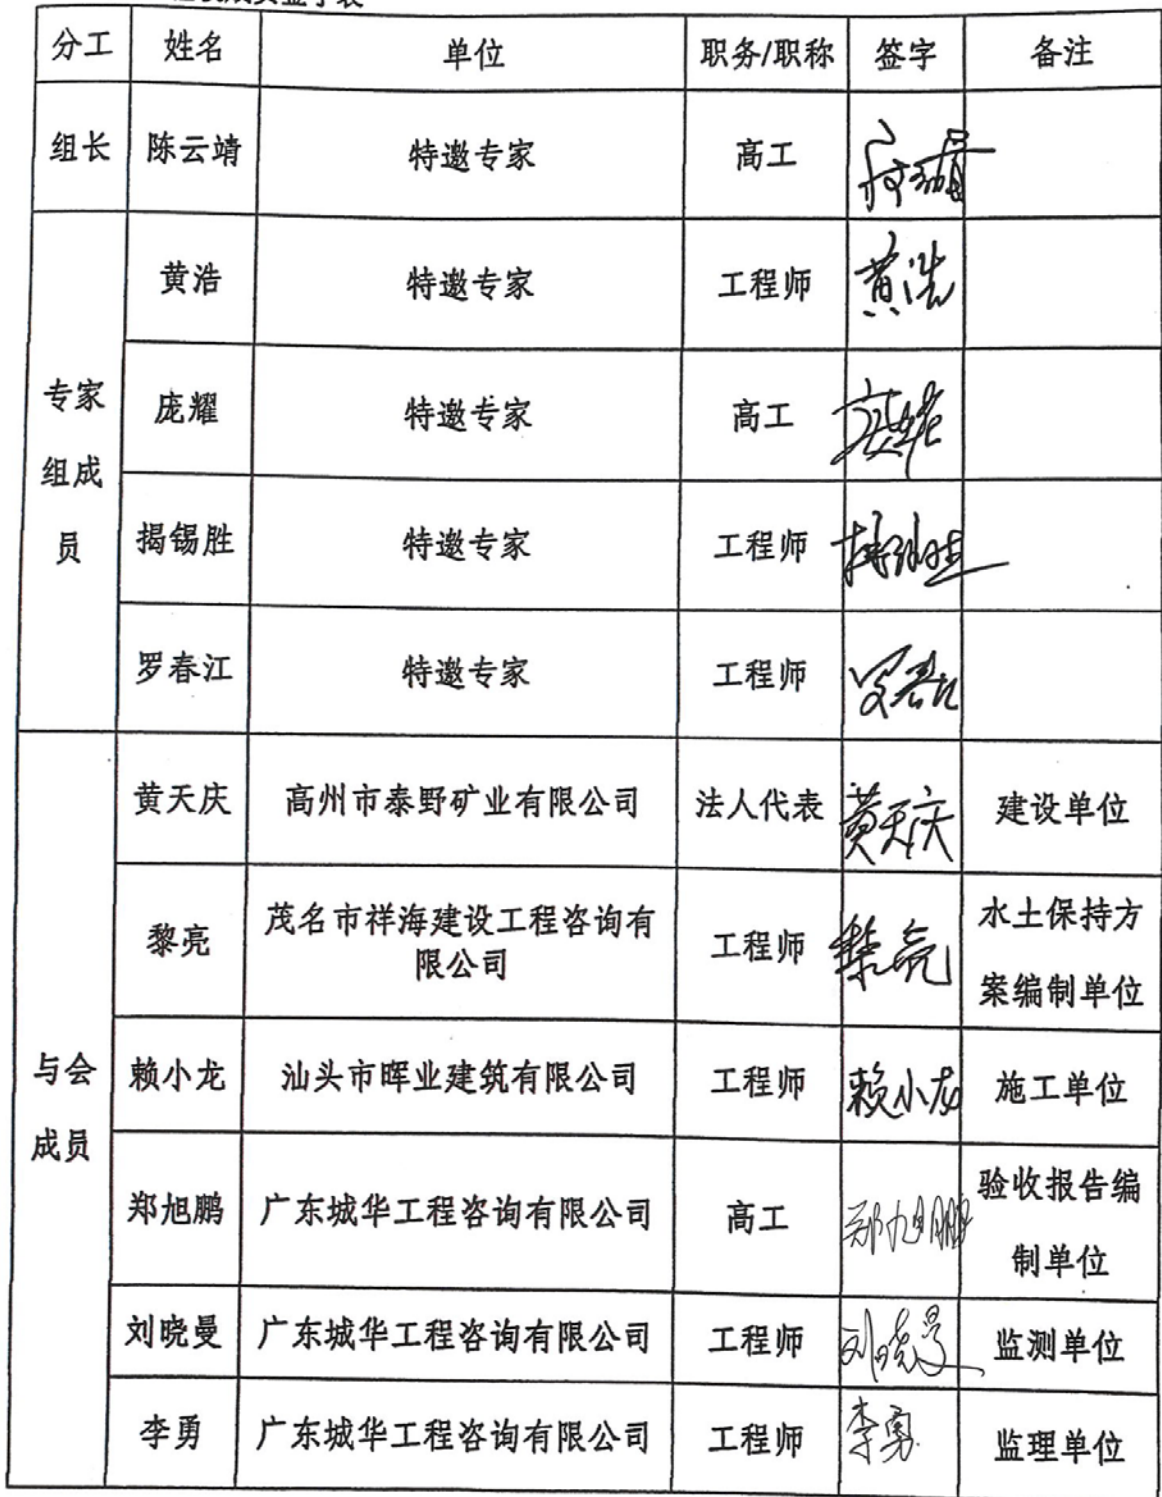 分工 姓名 单位 职务/职称 签字 备注
组长 陈云靖 特邀专家 高工
专家组成员 黄浩 特邀专家 工程师 黄浩
庞耀 特邀专家 高工
揭锡胜 特邀专家 工程师
罗春江 特邀专家 工程师 罗春江
与会成员 黄天庆 高州市泰野矿业有限公司 法人代表 黄天庆 建设单位
黎亮 茂名市祥海建设工程咨询有限公司 工程师 黎亮 水土保持方案编制单位
赖小龙 汕头市晖业建筑有限公司 工程师 赖小龙 施工单位
郑旭鹏 广东城华工程咨询有限公司 高工 郑旭鹏 验收报告编制单位
刘晓曼 广东城华工程咨询有限公司 工程师 刘晓曼 监测单位
李勇 广东城华工程咨询有限公司 工程师 李勇 监理单位